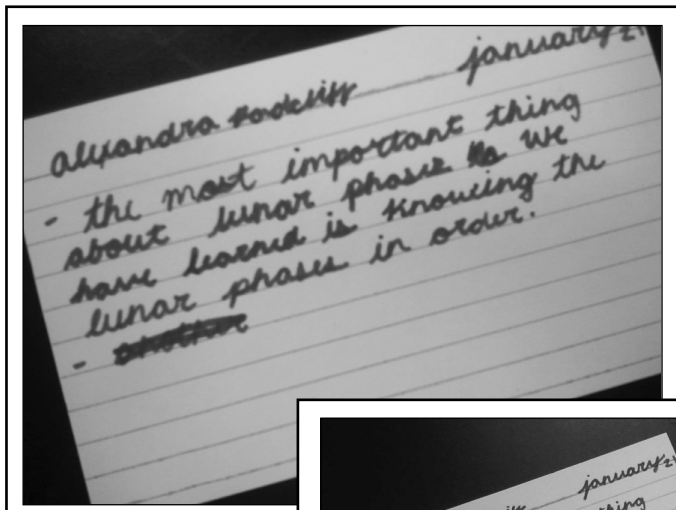 alexandra Radcliff january 21
- the most important thing
about lunar phases we
have learned is knowing the
lunar phases in order.
-
january 21
thing